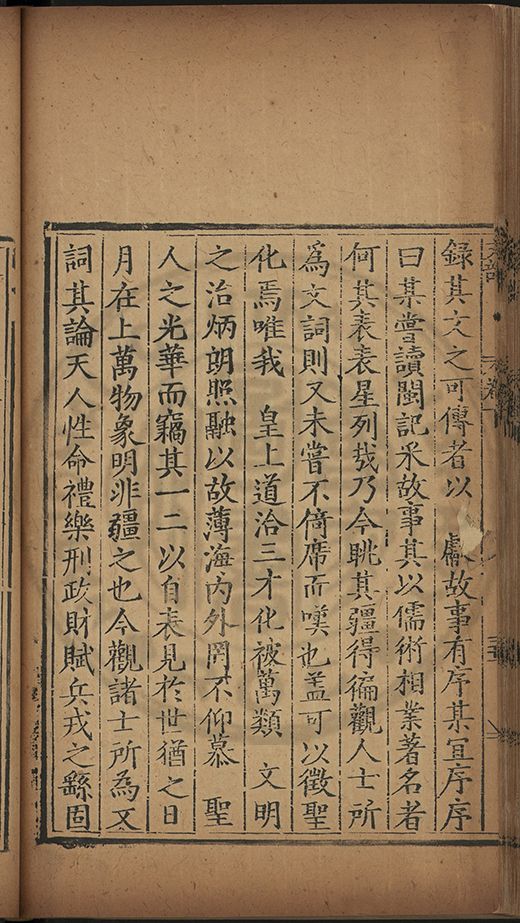 錄其文之可傳者以 獻故事有序某宜序序
曰某嘗讀閩記釆故事其以儒術相業著名者
何其表表星列㢤乃今眺其疆得徧觀人士所
爲文詞則又未嘗不倚席而嘆也盖可以徵聖
化焉唯我 皇上道洽三才化被萬類 文明
之治炳朗照融以故薄海內外罔不仰慕 聖
人之光華而竊其一二以自表見於世猶之日
月在上萬物象明非疆之也今觀諸士所為文
詞其論天人性命禮樂刑政財賦兵戎之繇固